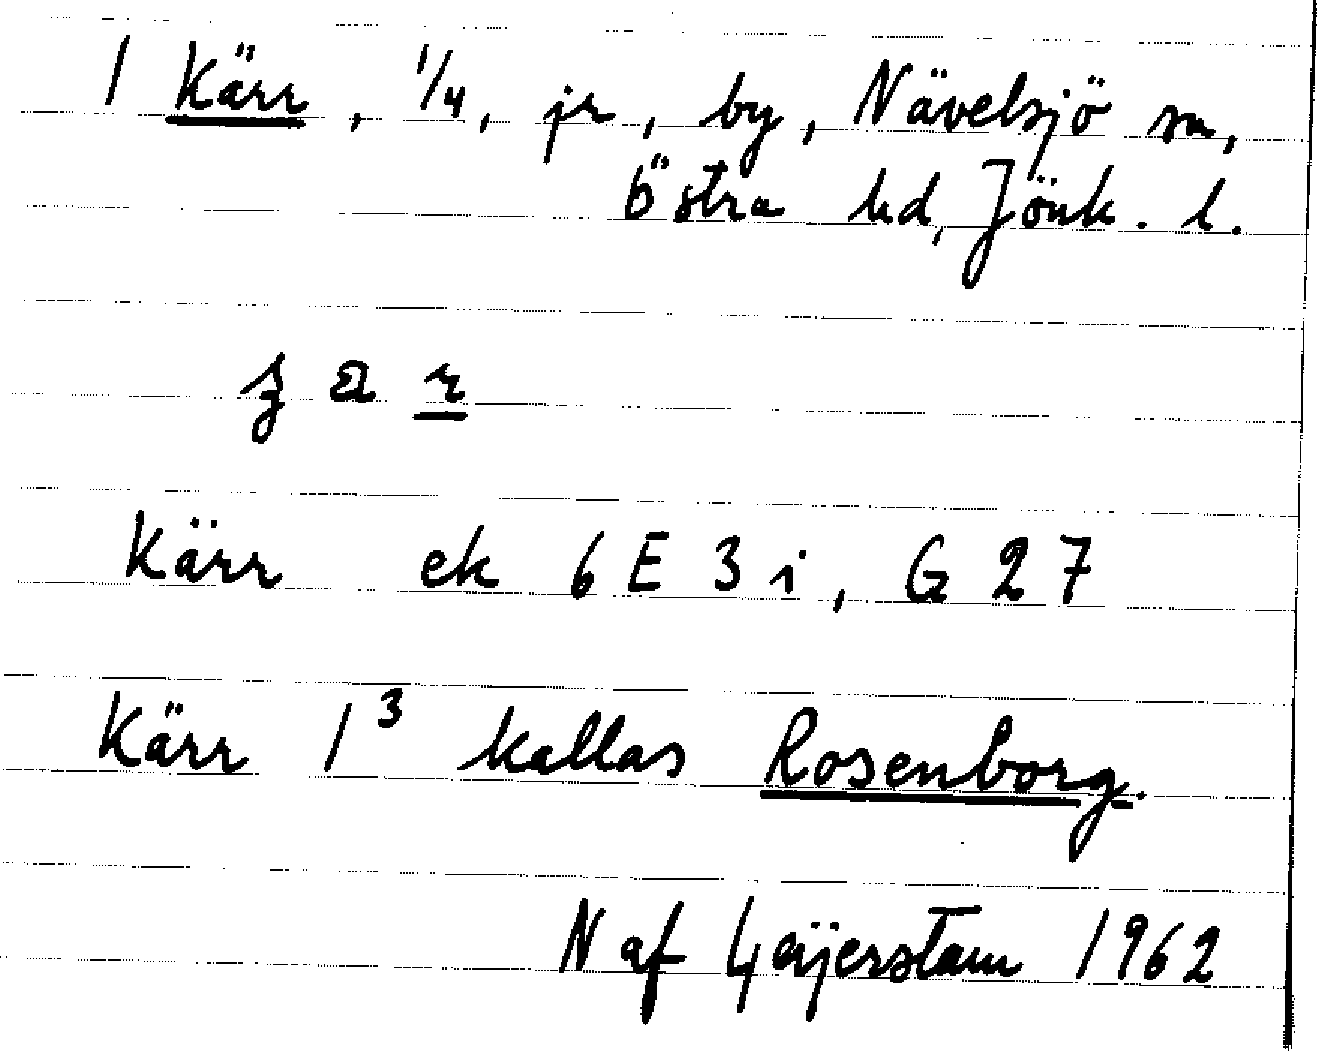 1 Kärr, 1/4, jr, by, Nävelsjö sn,
Östra hd, Jönk. l.
Kärr ek 6 E 3 i, G 27
Kärr 1³ kallas Rosenborg.
N af Geijerstam 1962